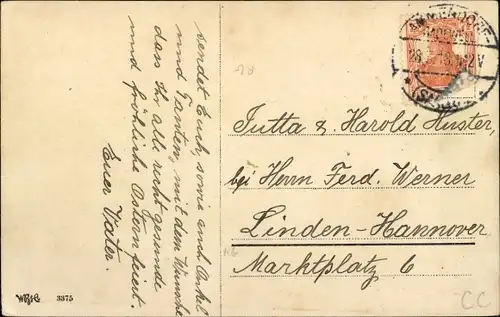 sendet Euch, sowie auch Onkel
und Tanten, mit dem Wunsche
dass Ihr alle recht gesunde
und fröhliche Ostern feiert.
Euer Vater.
AMMENDORF
12V
Jutta & Harold Huster,
bei Herrn Ferd. Werner
Linden-Hannover
Marktplatz 6
W.R.&C. 3375
CC